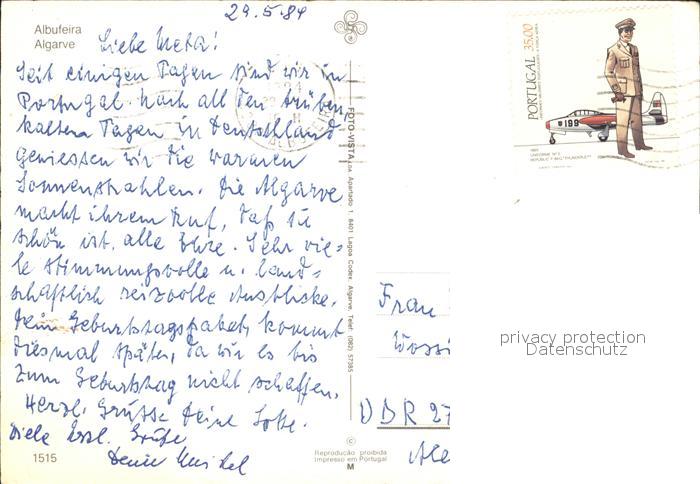 29.5.84
Albufeira
Algarve
Liebe Meta!
Seit einigen Tagen sind wir in
Portugal. Nach all den trüben,
kalten Tagen in Deutschland
geniessen wir die warmen
Sonnenstrahlen. Die Algarve
macht ihrem Ruf, daß sie
schön ist, alle Ehre. Sehr vie=
le stimmungsvolle u. land=
schaftlich reizvolle Ausblicke.
Dein Geburtstagspaket, kommt
diesmal später, da wir es bis
zum Geburtstag nicht schaffen.
Herzl. Grüsse Deine
Viele herzl. Grüße
1515
FOTO-VISTA Apartado 1, 8401 Lagoa Codex, Algarve, Telef. (082) 57385
©
Reprodução proibida
Impresso em Portugal
M
PORTUGAL 35,00
199
Frau
DDR 27
privacy protection
Datenschutz